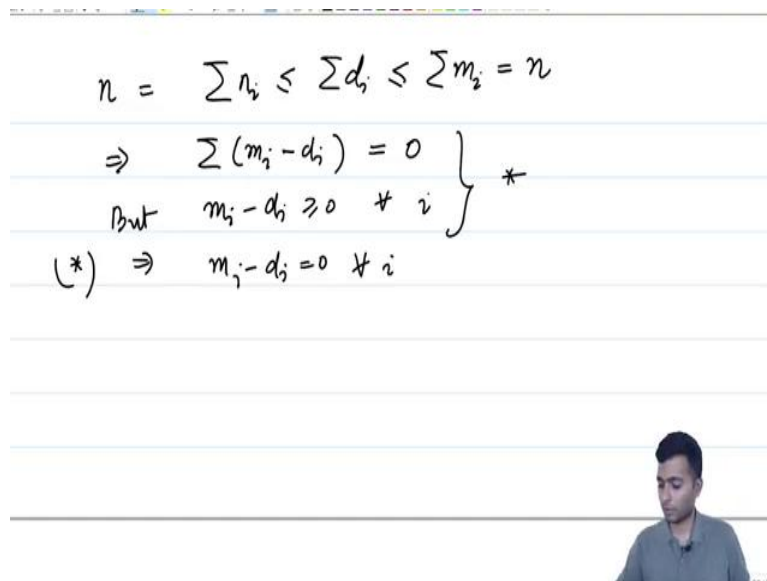 n = Σ n_i ≤ Σ d_i ≤ Σ m_i = n
⇒ Σ (m_i - d_i) = 0
But m_i - d_i ≥ 0 ∀ i } *
(*) ⇒ m_i - d_i = 0 ∀ i